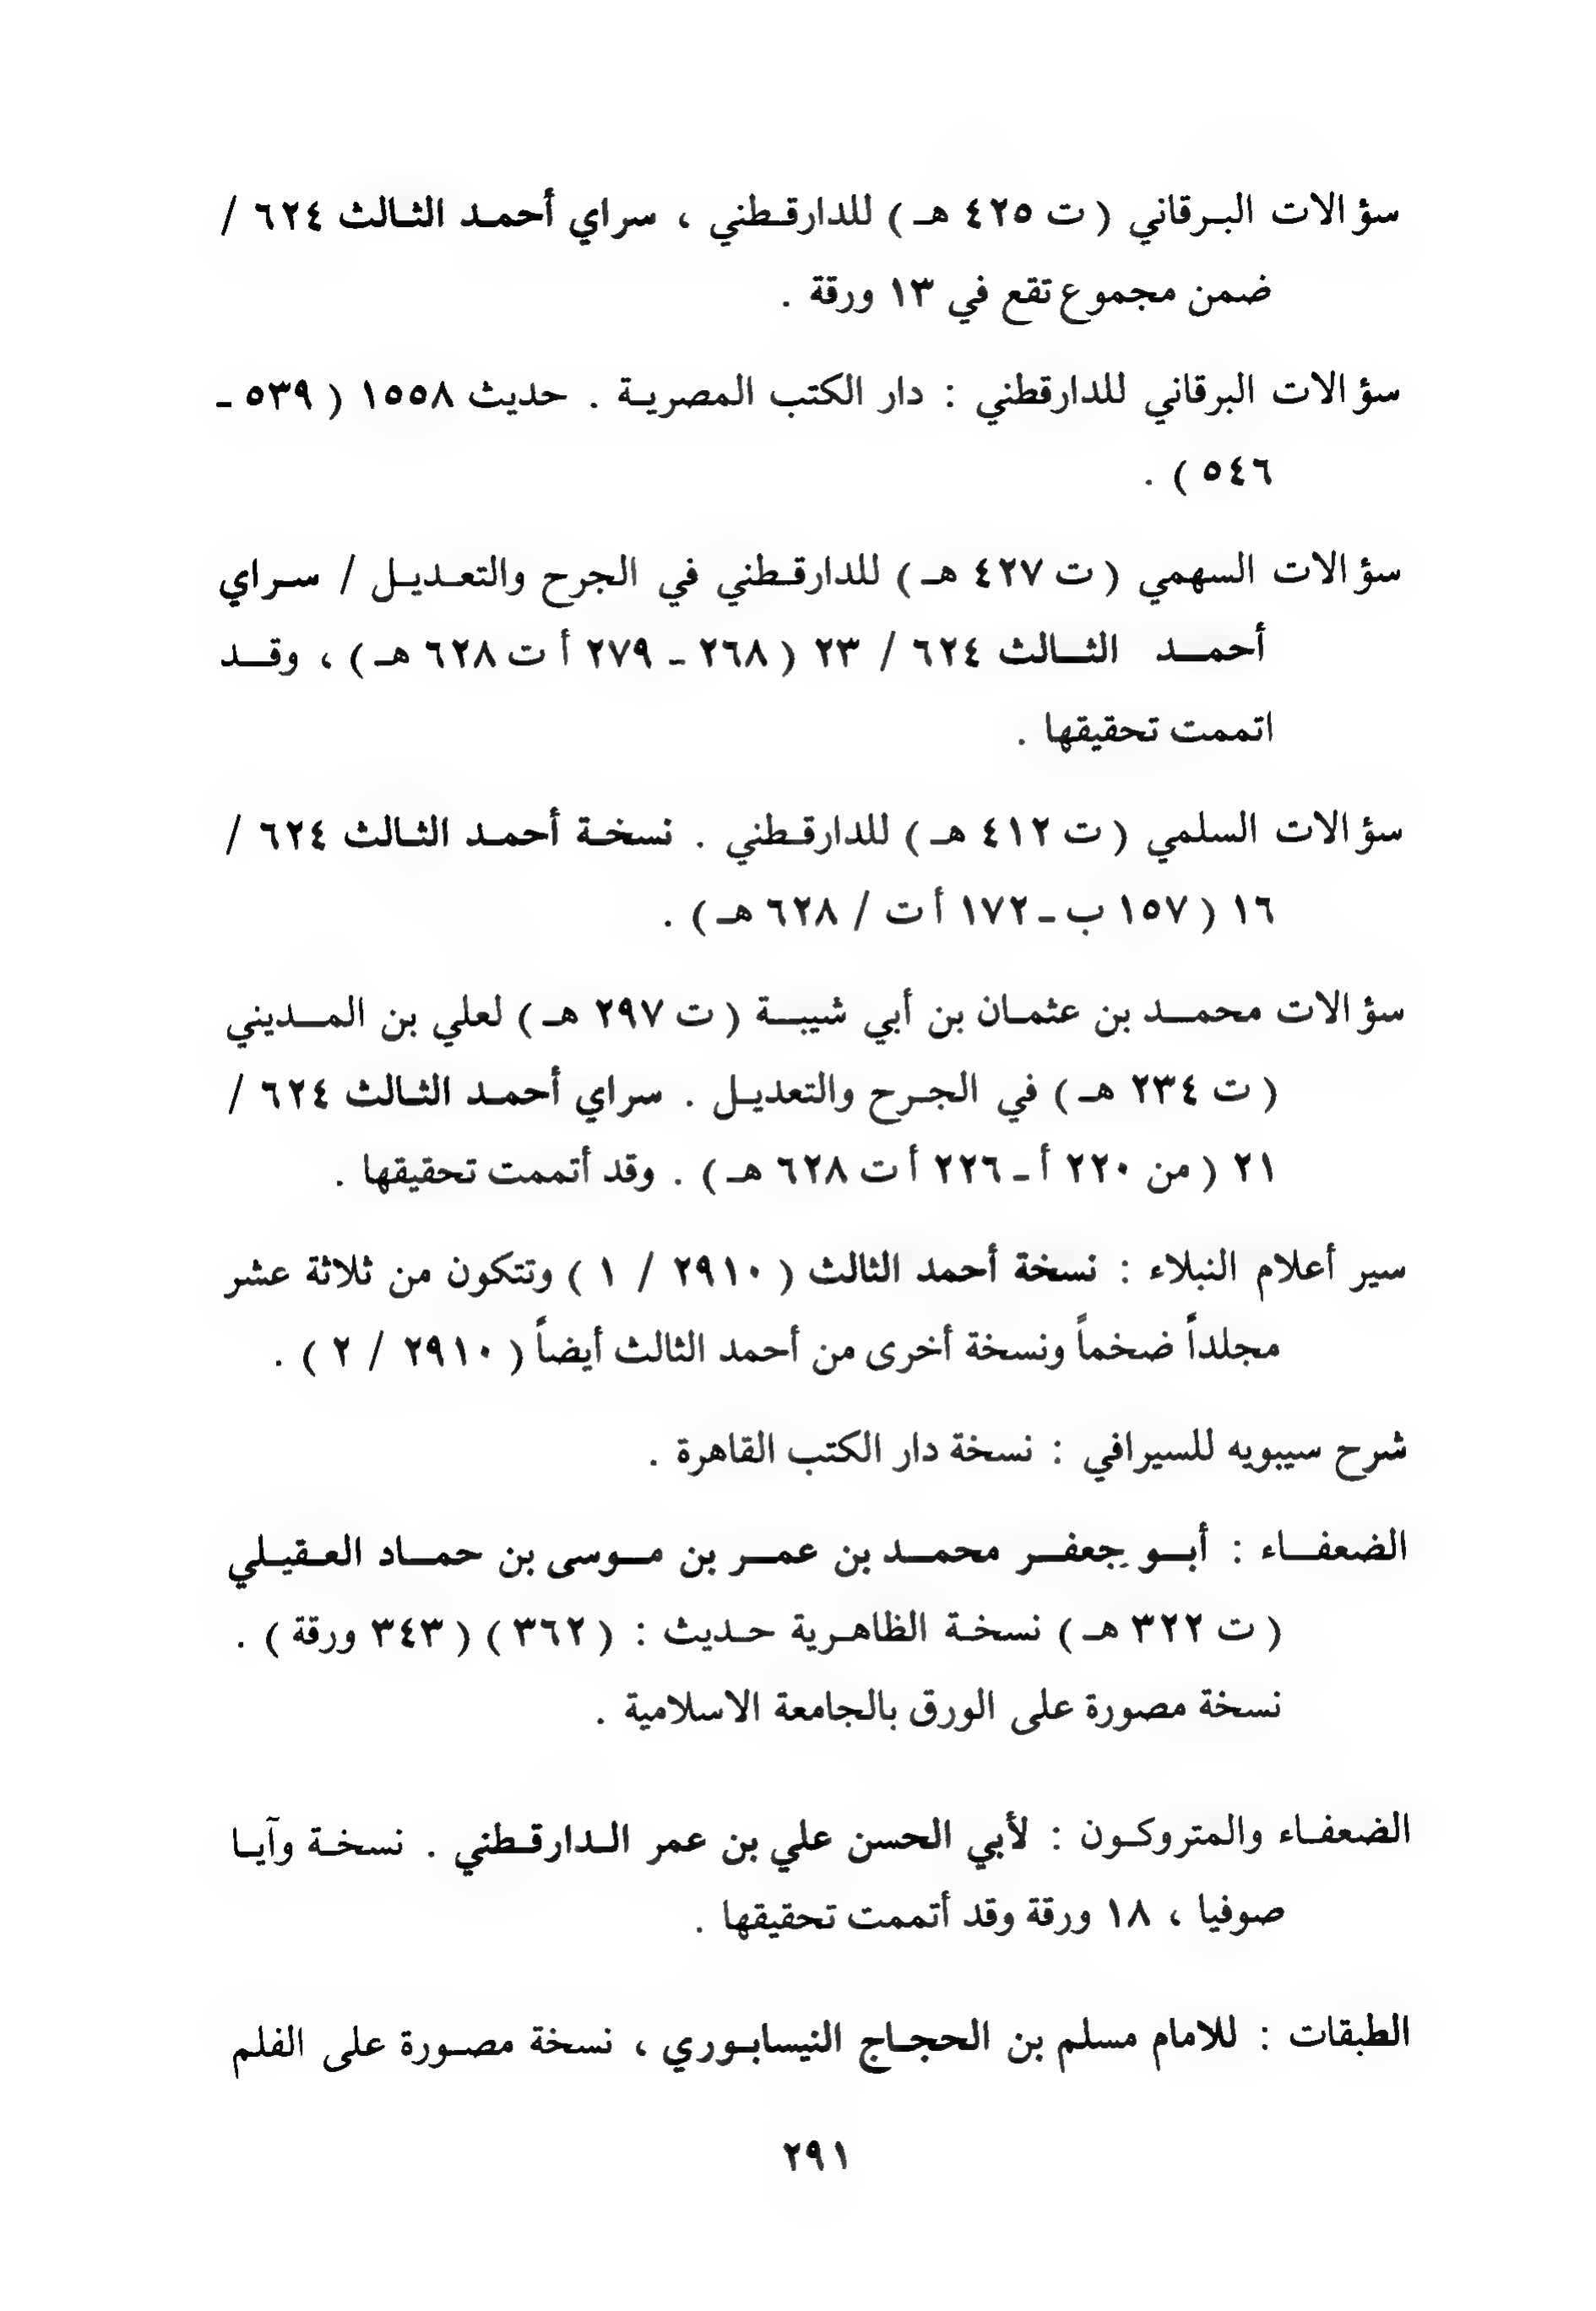 سؤالات البرقاني ( ت ٤٢٥ هـ ) للدارقطني ، سراي أحمد الثالث ٦٢٤ /
ضمن مجموع تقع في ١٣ ورقة .
سؤالات البرقاني للدارقطني : دار الكتب المصرية . حديث ١٥٥٨ ( ٥٣٩ -
٥٤٦ ) .
سؤالات السهمي ( ت ٤٢٧ هـ ) للدارقطني في الجرح والتعديل / سراي
أحمد الثالث ٦٢٤ / ٢٣ ( ٢٦٨ - ٢٧٩ أ ت ٦٢٨ هـ ) ، وقد
اتممت تحقيقها .
سؤالات السلمي ( ت ٤١٢ هـ ) للدارقطني . نسخة أحمد الثالث ٦٢٤ /
١٦ ( ١٥٧ ب - ١٧٢ أ ت / ٦٢٨ هـ ) .
سؤالات محمد بن عثمان بن أبي شيبة ( ت ٢٩٧ هـ ) لعلي بن المديني
( ت ٢٣٤ هـ ) في الجرح والتعديل . سراي أحمد الثالث ٦٢٤ /
٢١ ( من ٢٢٠ أ - ٢٢٦ أ ت ٦٢٨ هـ ) . وقد أتممت تحقيقها .
سير أعلام النبلاء : نسخة أحمد الثالث ( ٢٩١٠ / ١ ) وتتكون من ثلاثة عشر
مجلداً ضخماً ونسخة أخرى من أحمد الثالث أيضاً ( ٢٩١٠ / ٢ ) .
شرح سيبويه للسيرافي : نسخة دار الكتب القاهرة .
الضعفاء : أبو جعفر محمد بن عمر بن موسى بن حماد العقيلي
( ت ٣٢٢ هـ ) نسخة الظاهرية حديث : ( ٣٦٢ ) ( ٣٤٣ ورقة ) .
نسخة مصورة على الورق بالجامعة الاسلامية .
الضعفاء والمتروكون : لأبي الحسن علي بن عمر الدارقطني . نسخة وآيا
صوفيا ، ١٨ ورقة وقد أتممت تحقيقها .
الطبقات : للامام مسلم بن الحجاج النيسابوري ، نسخة مصورة على الفلم
٢٩١